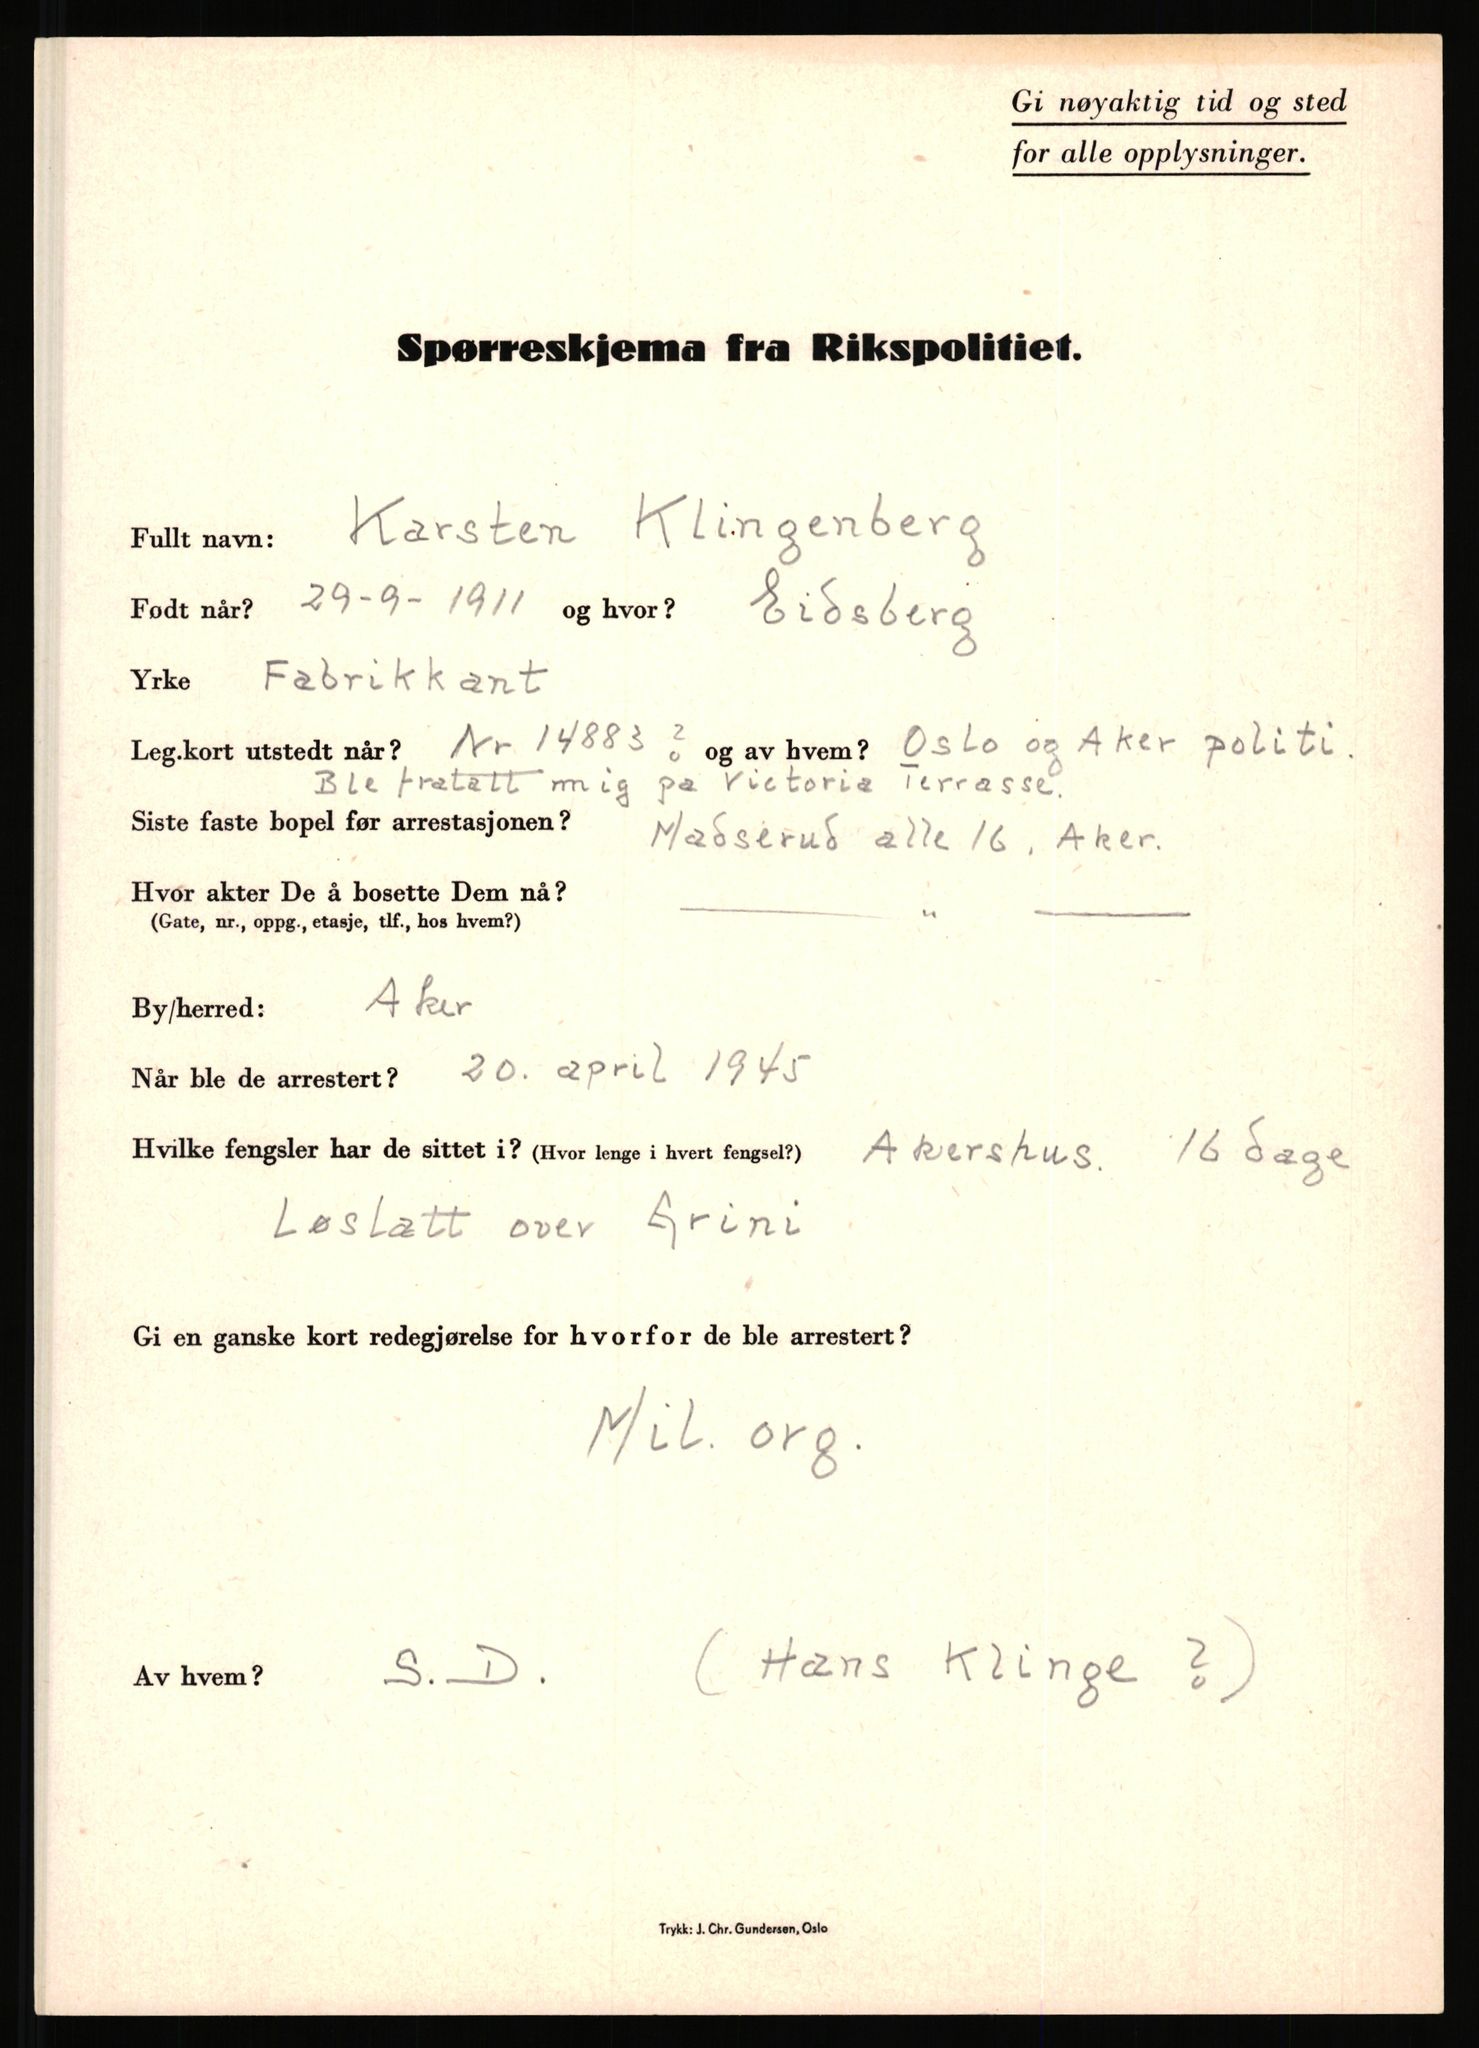 Gi nøyaktig tid og sted
for alle opplysninger.
Spørreskjema fra Rikspolitiet.
Fullt navn: Karsten Klingenberg
Født når? 29-9-1911 og hvor? Eidsberg
Yrke Fabrikkant
Leg.kort utstedt når? Nr 14883 ? og av hvem? Oslo og Aker politi.
Ble fratatt mig på Victoria Terrasse.
Siste faste bopel før arrestasjonen? Madserud alle 16, Aker.
Hvor akter De å bosette Dem nå? — " —
(Gate, nr., oppg., etasje, tlf., hos hvem?)
By/herred: Aker
Når ble de arrestert? 20. april 1945
Hvilke fengsler har de sittet i? (Hvor lenge i hvert fengsel?) Akershus. 16 dage
Løslatt over Grini
Gi en ganske kort redegjørelse for hvorfor de ble arrestert?
Mil. org.
Av hvem? S.D. (Hans Klinge ?)
Trykk: J. Chr. Gundersen, Oslo